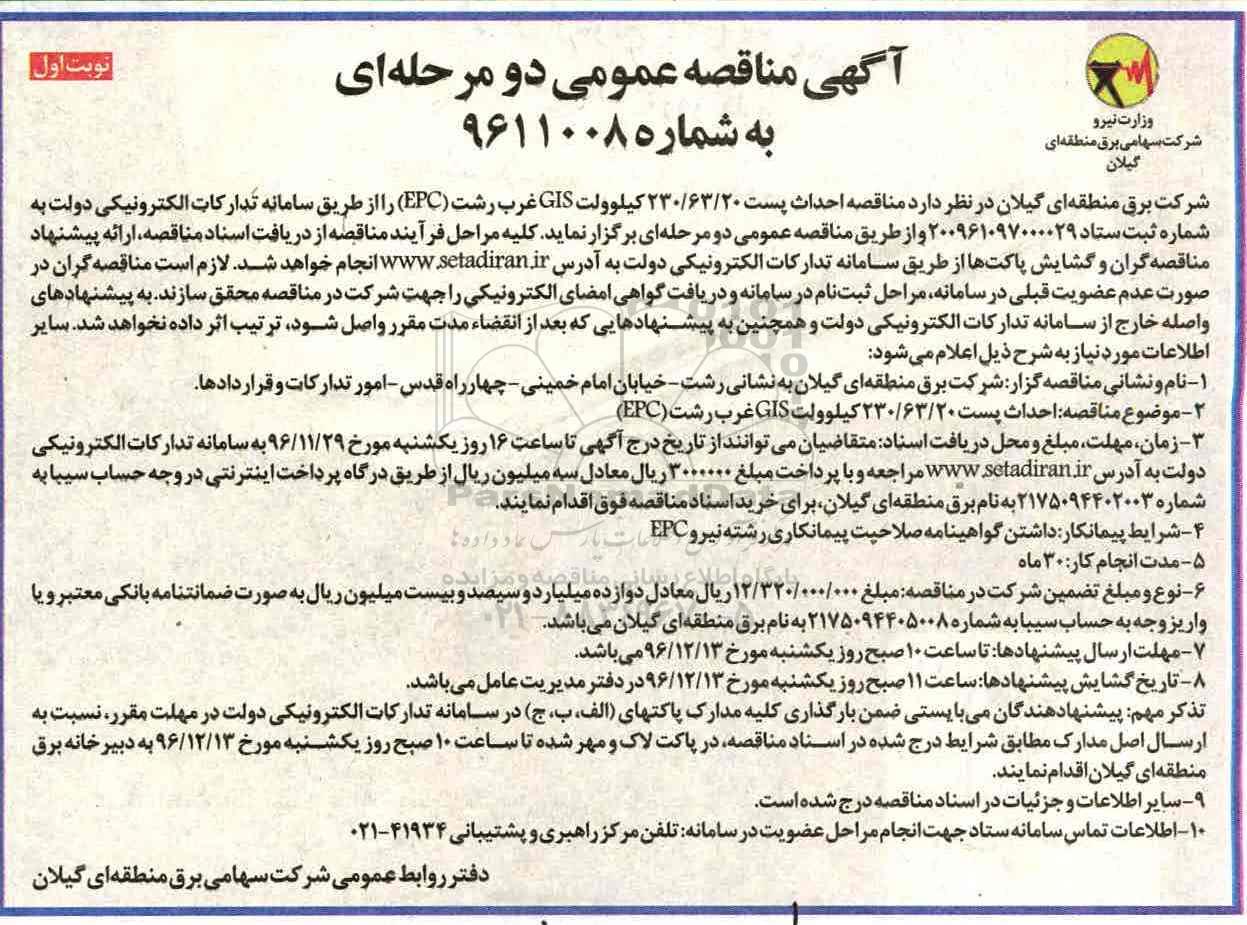 نوبت اول
آگهی مناقصه عمومی دو مرحله‌ای
به شماره ۹۶۱۱۰۰۸
وزارت نیرو
شرکت سهامی برق منطقه‌ای
گیلان
شرکت برق منطقه‌ای گیلان در نظر دارد مناقصه احداث پست ۲۳۰/۶۳/۲۰ کیلوولت GIS غرب رشت (EPC) را از طریق سامانه تدارکات الکترونیکی دولت به
شماره ثبت ستاد ۲۰۰۹۶۱۰۹۷۰۰۰۰۲۹ و از طریق مناقصه عمومی دو مرحله‌ای برگزار نماید. کلیه مراحل فرآیند مناقصه از دریافت اسناد مناقصه، ارائه پیشنهاد
مناقصه‌گران و گشایش پاکت‌ها از طریق سامانه تدارکات الکترونیکی دولت به آدرس www.setadiran.ir انجام خواهد شد. لازم است مناقصه‌گران در
صورت عدم عضویت قبلی در سامانه، مراحل ثبت‌نام در سامانه و دریافت گواهی امضای الکترونیکی را جهت شرکت در مناقصه محقق سازند. به پیشنهادهای
واصله خارج از سامانه تدارکات الکترونیکی دولت و همچنین به پیشنهادهایی که بعد از انقضاء مدت مقرر واصل شود، ترتیب اثر داده نخواهد شد. سایر
اطلاعات مورد نیاز به شرح ذیل اعلام می‌شود:
۱-نام و نشانی مناقصه‌گزار: شرکت برق منطقه‌ای گیلان به نشانی رشت-خیابان امام خمینی-چهارراه قدس-امور تدارکات و قراردادها.
۲-موضوع مناقصه: احداث پست ۲۳۰/۶۳/۲۰ کیلوولت GIS غرب رشت (EPC)
۳-زمان، مهلت، مبلغ و محل دریافت اسناد: متقاضیان می‌توانند از تاریخ درج آگهی تا ساعت ۱۶ روز یکشنبه مورخ ۹۶/۱۱/۲۹ به سامانه تدارکات الکترونیکی
دولت به آدرس www.setadiran.ir مراجعه و با پرداخت مبلغ ۳۰۰۰۰۰۰ ریال معادل سه میلیون ریال از طریق درگاه پرداخت اینترنتی در وجه حساب سیبا به
شماره ۲۱۷۵۰۹۴۴۰۲۰۰۳ به نام برق منطقه‌ای گیلان، برای خرید اسناد مناقصه فوق اقدام نمایند.
۴-شرایط پیمانکار: داشتن گواهینامه صلاحیت پیمانکاری رشته نیرو EPC
۵-مدت انجام کار: ۳۰ ماه
۶-نوع و مبلغ تضمین شرکت در مناقصه: مبلغ ۱۲/۳۲۰/۰۰۰/۰۰۰ ریال معادل دوازده میلیارد و سیصد و بیست میلیون ریال به صورت ضمانتنامه بانکی معتبر و یا
واریز وجه به حساب سیبا به شماره ۲۱۷۵۰۹۴۴۰۵۰۰۸ به نام برق منطقه‌ای گیلان می‌باشد.
۷-مهلت ارسال پیشنهادها: تا ساعت ۱۰ صبح روز یکشنبه مورخ ۹۶/۱۲/۱۳ می‌باشد.
۸-تاریخ گشایش پیشنهادها: ساعت ۱۱ صبح روز یکشنبه مورخ ۹۶/۱۲/۱۳ در دفتر مدیریت عامل می‌باشد.
تذکر مهم: پیشنهاددهندگان می‌بایستی ضمن بارگذاری کلیه مدارک پاکتهای (الف، ب، ج) در سامانه تدارکات الکترونیکی دولت در مهلت مقرر، نسبت به
ارسال اصل مدارک مطابق شرایط درج شده در اسناد مناقصه، در پاکت لاک و مهر شده تا ساعت ۱۰ صبح روز یکشنبه مورخ ۹۶/۱۲/۱۳ به دبیرخانه برق
منطقه‌ای گیلان اقدام نمایند.
۹-سایر اطلاعات و جزئیات در اسناد مناقصه درج شده است.
۱۰-اطلاعات تماس سامانه ستاد جهت انجام مراحل عضویت در سامانه: تلفن مرکز راهبری و پشتیبانی ۴۱۹۳۴-۰۲۱
دفتر روابط عمومی شرکت سهامی برق منطقه‌ای گیلان